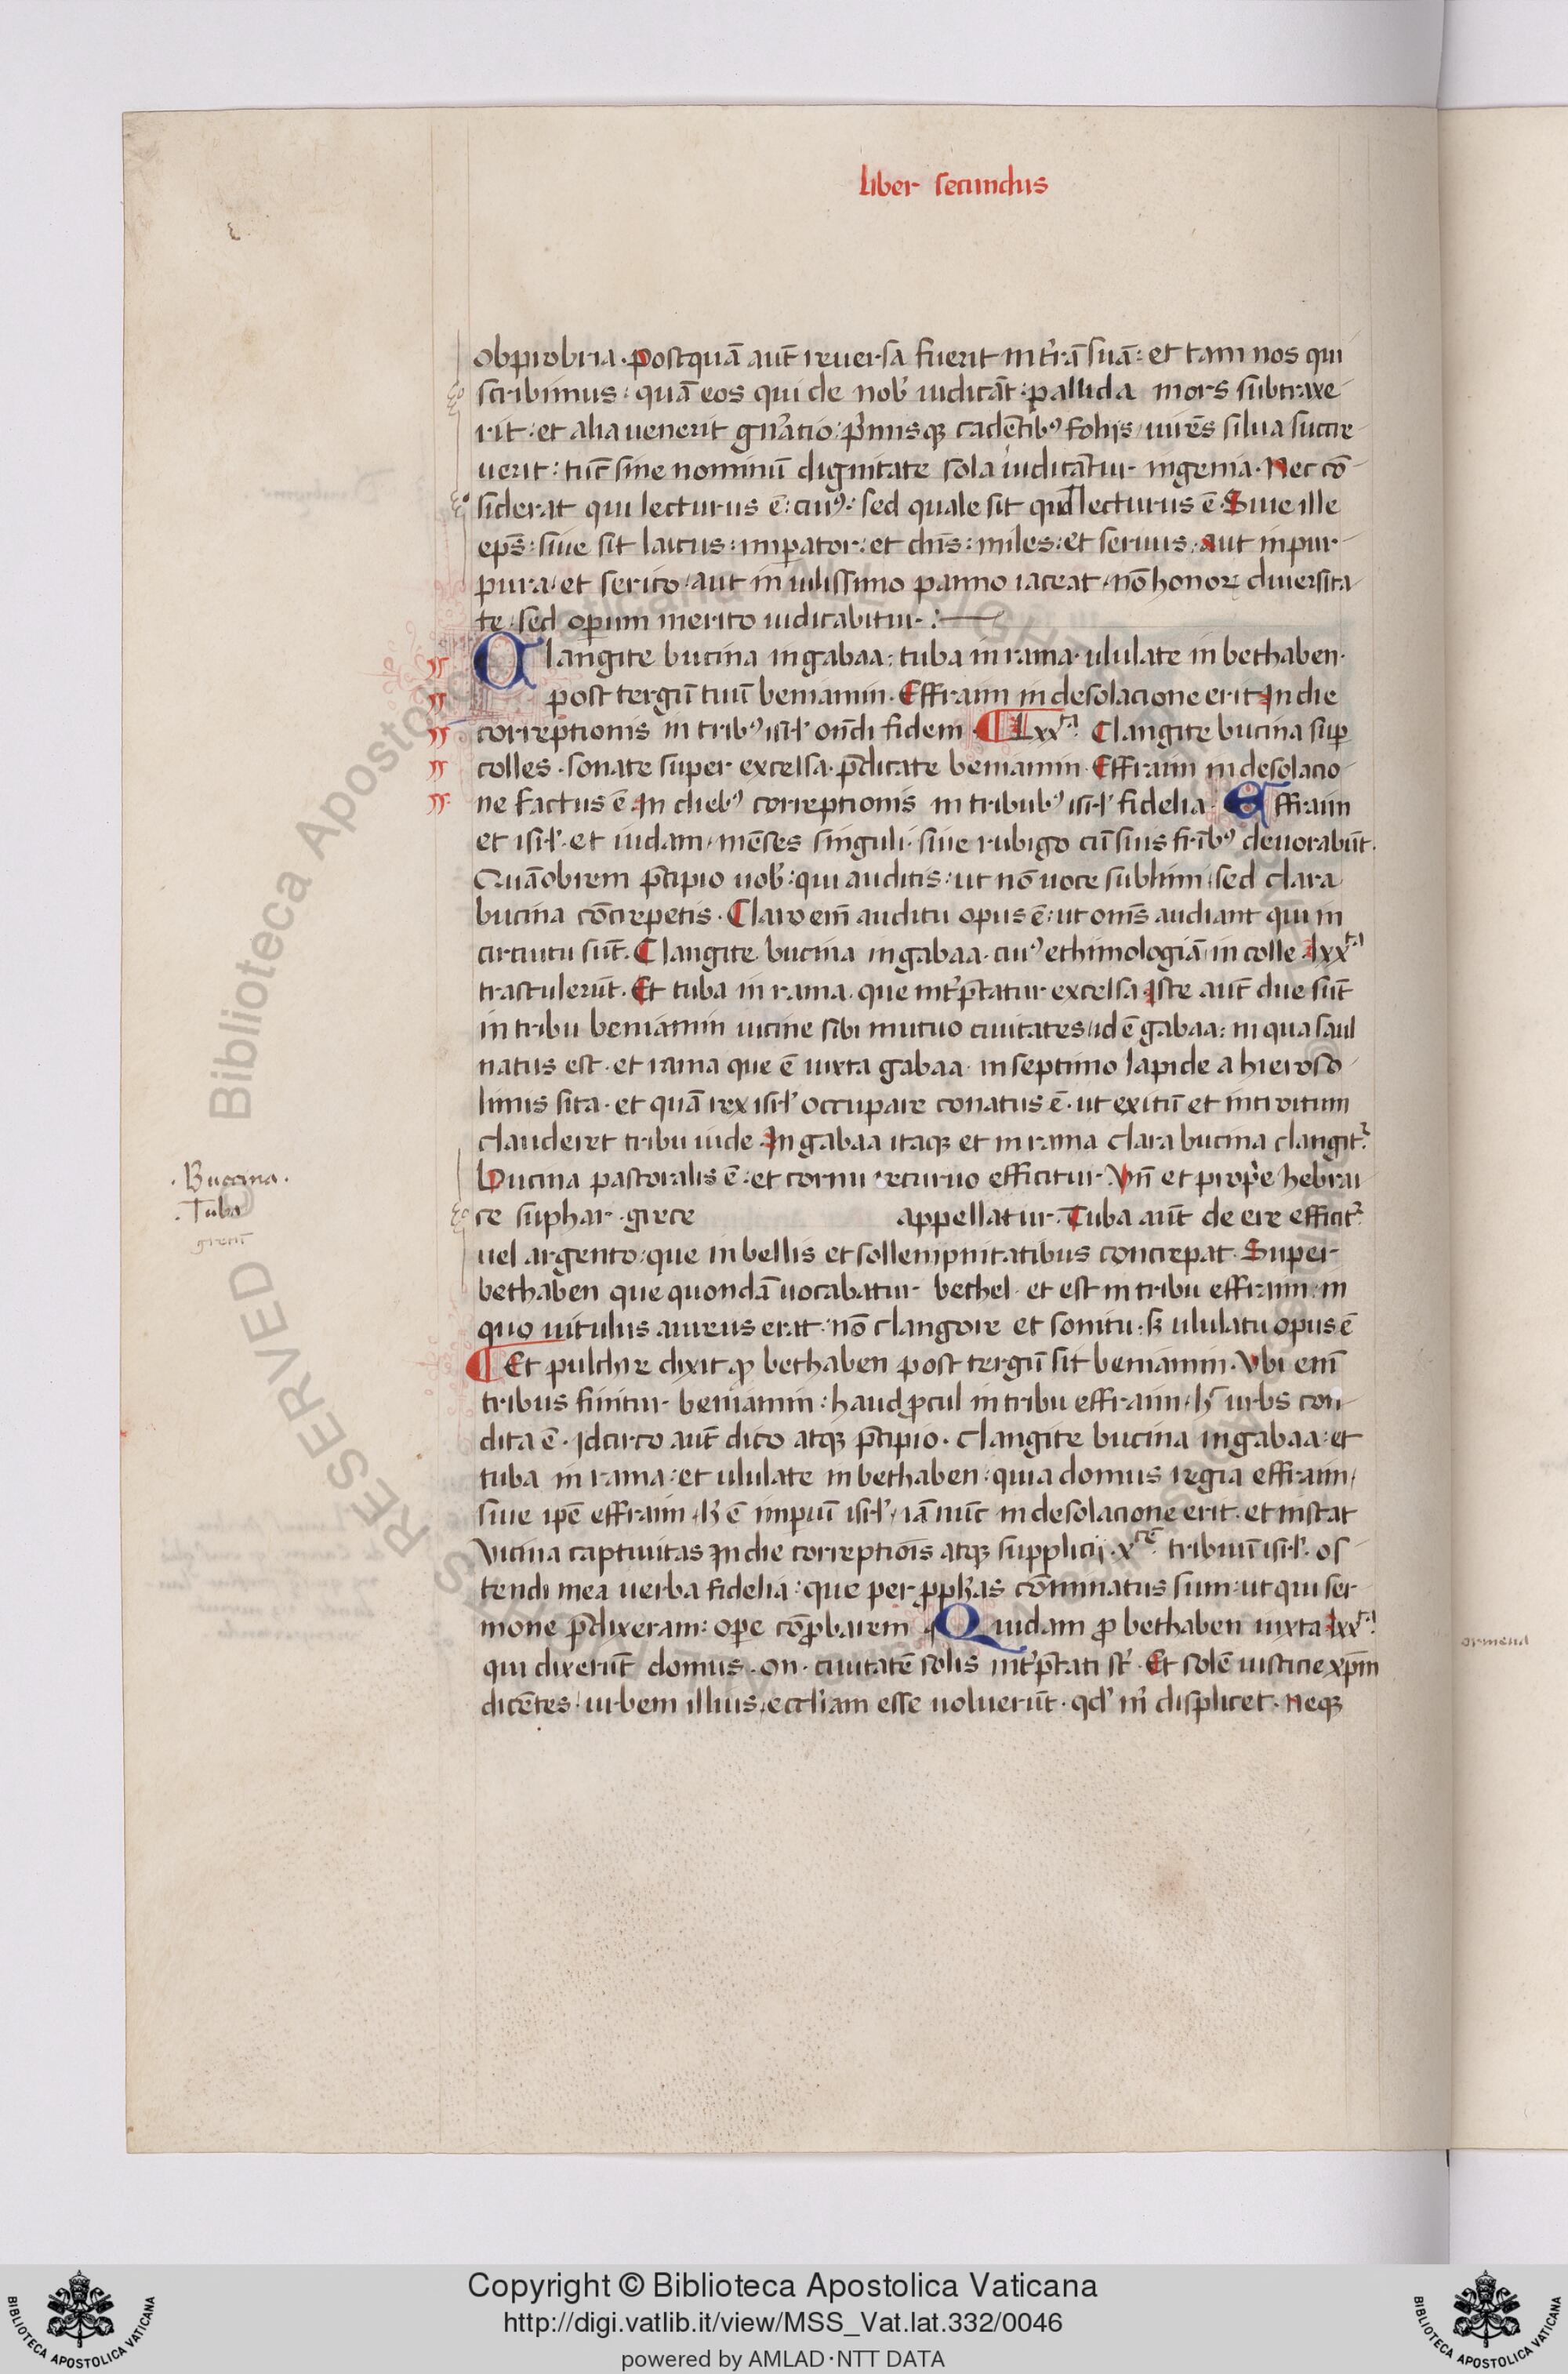 liber secundus
obprobria. Postquā aut̄ reuersa fuerit in t̄rā suā: et tam nos qui
scribimus: quā eos qui de nob̓ iudicāt: pallida mors subtraxe-
rit: et alia uenerit gn̄ratio: p̄misq; cadētib⁹ folijs uirēs silua succre-
uerit: tūc sine nominū dignitate sola iudicātur ingenia. Nec cō-
siderat qui lecturus ē: cui⁹: sed quale sit qud lecturus ē. Siue ille
ep̄s: siue sit laicus: imperator: et dn̄s: miles: et seruus: aut in pur-
pura et serico: aut in uilissimo panno iaceat: nō honor̄ diuersita-
te: sed operum merito iudicabitur:
Clangite bucina in gabaa: tuba in rama. ululate in bethaben.
post tergū tuū beniamin. Effraim in desolacione erit In die
correptionis in trib⁹ isr̄l ond̄i fidem ¶ Lxxᵗᵃ. Clangite bucina sup̄
colles. sonate super excelsa. p̄dicate beniamin. Effraim in desolacio-
ne factus ē. In dieb⁹ correptionis in tribub⁹ isr̄l fidelia. Effraim
et isr̄l. et iudam, mēses singuli. siue rubigo cū suis fr̄ib⁹ deuorabūt.
Quāobrem p̄cipio uob̓: qui auditis: ut nō uoce sublimi: sed clara
bucina cōcrepetis. Claro em̄ auditu opus ē: ut om̄s audiant qui in
circuitu sūt. Clangite bucina in gabaa. cui⁹ ethimologiā in colle lxxᵗᵃ
trastulerūt. Et tuba in rama. que int̓p̄tatur excelsa. Iste aut̄ due sūt
in tribu beniamin uicine sibi mutuo ciuitates, id ē gabaa: in qua saul
natus est. et rama que ē iuxta gabaa. in septimo lapide a hieroso-
limis sita. et quā rex isr̄l occupare conatus ē. ut exitū et introitum
clauderet tribu iude. In gabaa itaq; et in rama clara bucina clangit̄.
Bucina pastoralis ē: et cornu recuruo efficitur. Vn̄ et propr̓e hebrai-
ce suphar. grece appellatur. Tuba aut̄ de ere efficit̄
uel argento. que in bellis et sollempnitatibus concrepat. Super
bethaben que quondā uocabatur bethel. et est in tribu effraim: in
quo uitulus aureus erat. nō clangore et sonitu. s; ululatu opus ē
¶ Et pulchre dixit q̄ bethaben post tergū sit beniamin. Vbi em̄
tribus finitur beniamin: haud p̄cul in tribu effraim, h̄ urbs con-
dita ē. Idcirco aut̄ dico atq; p̄cipio. Clangite bucina in gabaa: et
tuba in rama: et ululate in bethaben: quia domus regia effraim,
siue ip̄e effraim, h̓ ē impiū isr̄l, iā nūc in desolacione erit. et instat
vicina captiuitas In die correptiōis atq; supplicij. xᶜᵉ. tribuū isr̄l. os-
tendi mea uerba fidelia: que per pph̄as cōminatus sum: ut qui ser-
mone p̄dixeram: ope cōp̄barem. Quidam p̄ bethaben iuxta lxxᵗᵃ.
qui dixerūt domus. on. ciuitatē solis int̓p̄tati st̄. Et solē iusticie xp̄m
dicētes. urbem illius, eccl̄iam esse uoluerūt. qd̓ m̓ displicet. Neq;
.Buccina.
.Tuba
Copyright © Biblioteca Apostolica Vaticana
http://digi.vatlib.it/view/MSS_Vat.lat.332/0046
powered by AMLAD·NTT DATA
BIBLIOTECA APOSTOLICA VATICANA
BIBLIOTECA APOSTOLICA VATICANA